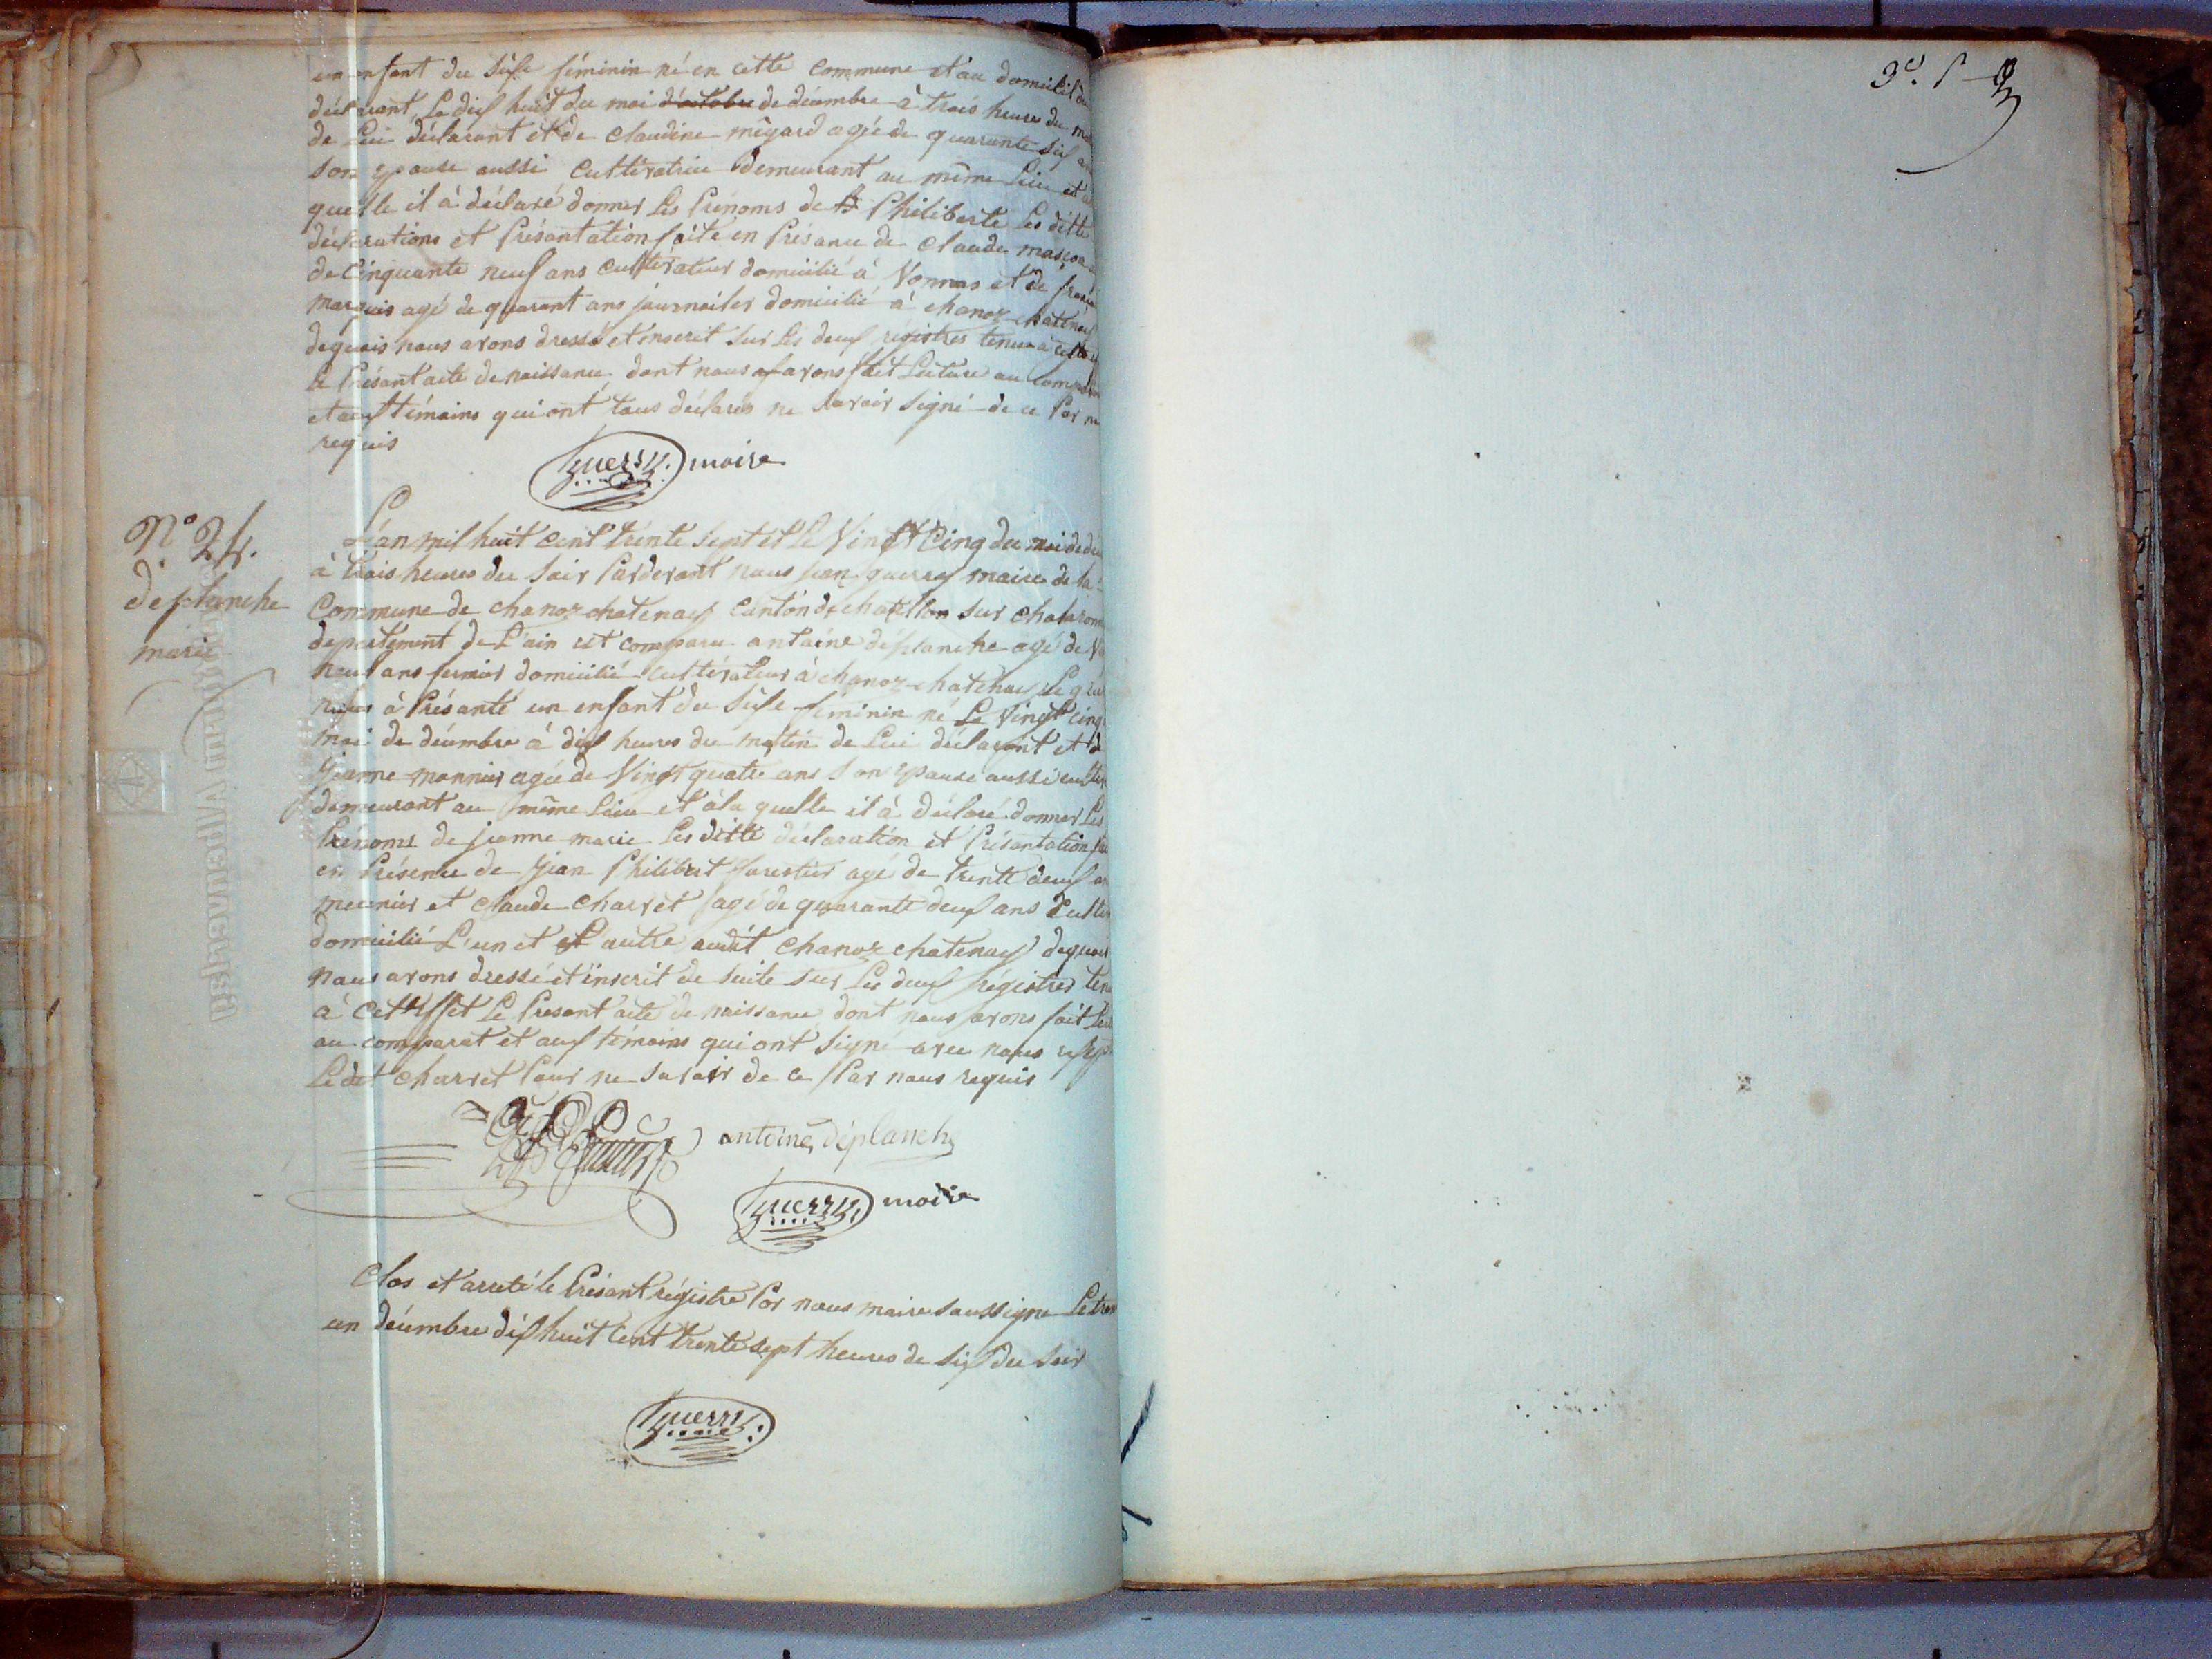 un enfant du sexe féminin né en cette commune et au domicile du
déclarant, Le dix huit du moi d'octobre de décembre à trois heures du
de Lui déclarant et de claudine mégard agée de quarante six
son epouse aussi cultivatrice demeurant au même Lieu et
quelle il à déclaré donner les Prénoms de Philiberte Les ditte
déclarations et Présantation faite en Présance de claude
de Cinquante neuf ans cultivateur domicilié à Vonnas et de
marquis agé de quarant ans journailer domicilié à chanoz chatenay
dequois nous avons dressé et inscrit sur Les deux registres tenu a
le Présant acte de naissance dont nous avons fait Lecture au
et aux témoins qui ont tous déclarés ne savoir signé de ce Par
requis
Guerry. maire
N° 24.
deplanche
marie
L'an mil huit cent trente sept et Le Vingt Cinq du moi de
à trois heures du Soir Pardevant nous jean guerry maire de la
Commune de chanoz chatenay canton de chatillon sur chalaronne
departement de L'ain est comparu antoine déplanche agé de
neuf ans fermier domicilié cultivateur à chanoz chatenay Le quel
nous à Présanté un enfant du sexe féminin né Le Vingt cinq
moi de décembre à dix heures du matin de Lui déclarant et de
jeanne monnier agée de Vingt quatre ans son epouse aussi
demeurant au même Lieu et àla quelle il à déclaré donner Les
Prénoms de jeanne marie Les ditte déclaration et Présantation
en Présence de jean Philibert agé de trente deux
meunier et claude charvet agé de quarante deux ans
domicilié L'un et L'autre audit chanoz chatenay dequois
nous avons dressé et inscrit de suite sur Les deux régistres
à cet effet Le Present acte de naissance dont nous avons fait
au comparant et aux témoins qui ont signé avec nous
Ledit charvet Pour ne savoir de ce Par nous requis
antoine déplanche
Guerry. maire
Clos et arreté le Présant régistre Par nous maire soussigné
un décembre dix huit cent trente sept heures de six du soir
Guerry